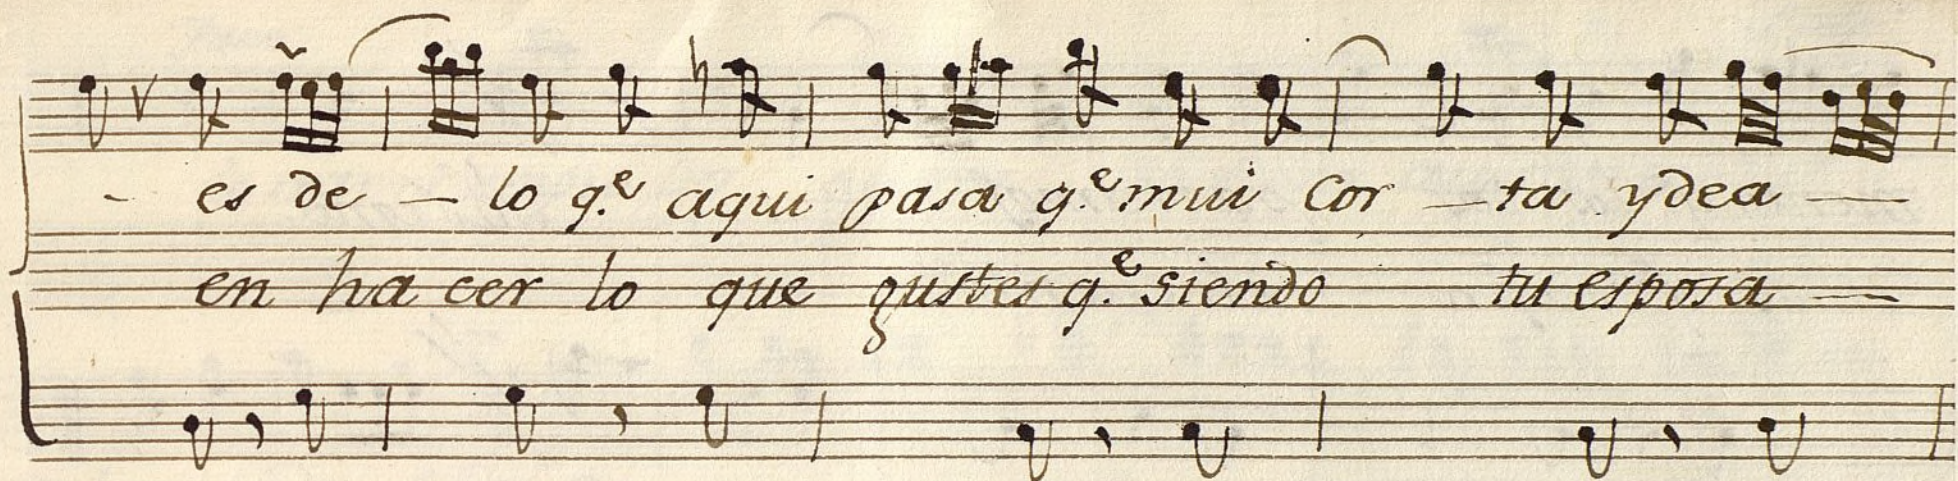 - es de - lo q.e aqui pasa q.e mui Cor - ta ydea -
en ha cer lo que gustes q.e siendo tu esposa -